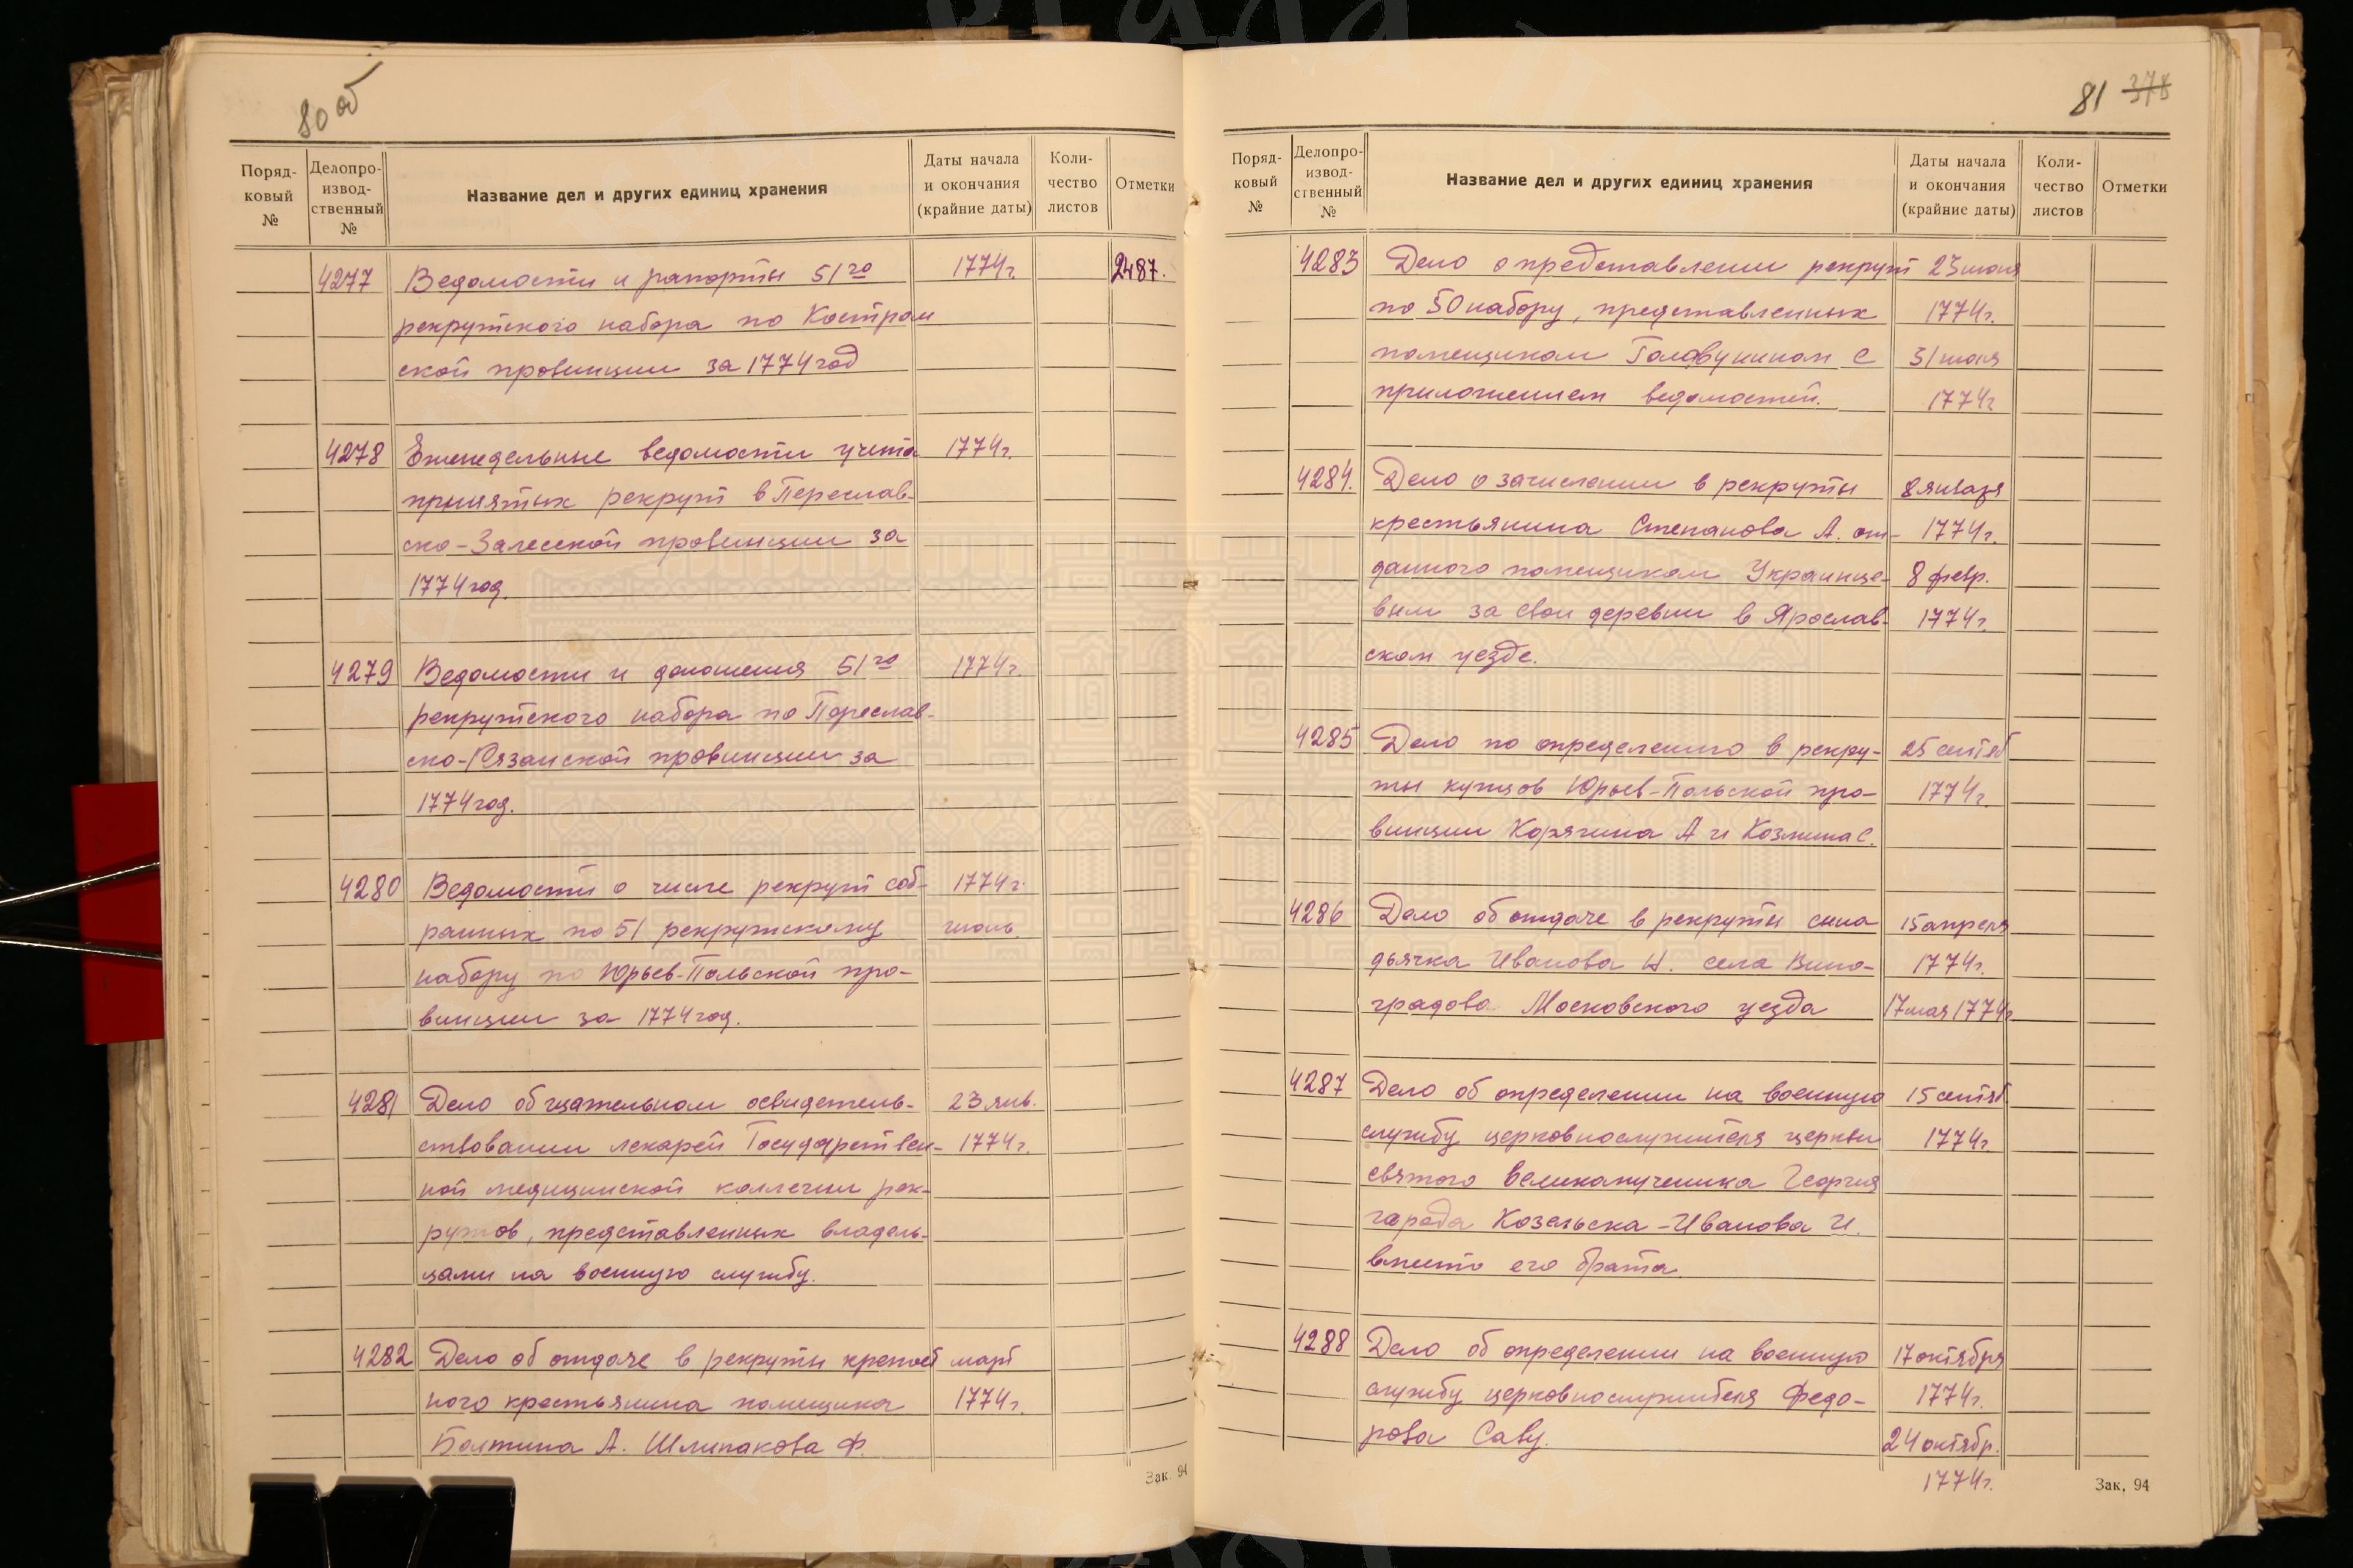 80 об
Поряд-
ковый
№
Делопро-
извод-
ственный
№
Название дел и других единиц хранения
Даты начала
и окончания
(крайние даты)
Коли-
чество
листов
Отметки
4277 Ведомости и рапорты 51го 1774г. 2487.
рекрутского набора по Костром
ской провинции за 1774 год
4278 Еженедельные ведомости учета 1774г.
принятых рекрут в Переслав-
ско-Залесской провинции за
1774 год.
4279 Ведомости и доношения 51го 1774г.
рекрутского набора по Переслав-
ско-Рязанской провинции за
1774 год.
4280 Ведомости о числе рекрут соб- 1774г.
ранных по 51 рекрутскому июль.
набору по Юрьев-Польской про-
винции за 1774 год.
4281 Дело об тщательном освидетель- 23 янв.
ствовании лекарей Государствен- 1774г.
ной медицинской коллегии рек-
рутов, представленных владель-
цами на военную службу.
4282 Дело об отдаче в рекруты крепост март
ного крестьянина помещика 1774г.
Болтина А. Шлипакова Ф.
Зак. 94
81 378
Поряд-
ковый
№
Делопро-
извод-
ственный
№
Название дел и других единиц хранения
Даты начала
и окончания
(крайние даты)
Коли-
чество
листов
Отметки
4283 Дело о представлении рекрут 23 июля
по 50 набору, представленных 1774г.
помещиком Головкиным с 31 июля
приложением ведомостей. 1774г
4284. Дело о зачислении в рекруты 8 января
крестьянина Степанова А. от- 1774г.
данного помещиком Украинце- 8 февр.
вым за свои деревни в Ярослав- 1774г.
ском уезде.
4285 Дело по определению в рекру- 25 сентяб
ты купцов Юрьев-Польской про- 1774г.
винции Корягина А и Козмина С.
4286 Дело об отдаче в рекруты сына 15 апреля
дьячка Иванова Н. села Вино- 1774г.
градова Московского уезда 17 мая 1774г
4287 Дело об определении на военную 15 сентяб
службу церковнослужителя церкви 1774г.
святого великомученика Георгия
города Козельска - Иванова И.
вместо его брата
4288 Дело об определении на военную 17 октября
службу церковнослужителя Федо- 1774г.
рова Саву. 24 октябр.
1774г.
Зак. 94